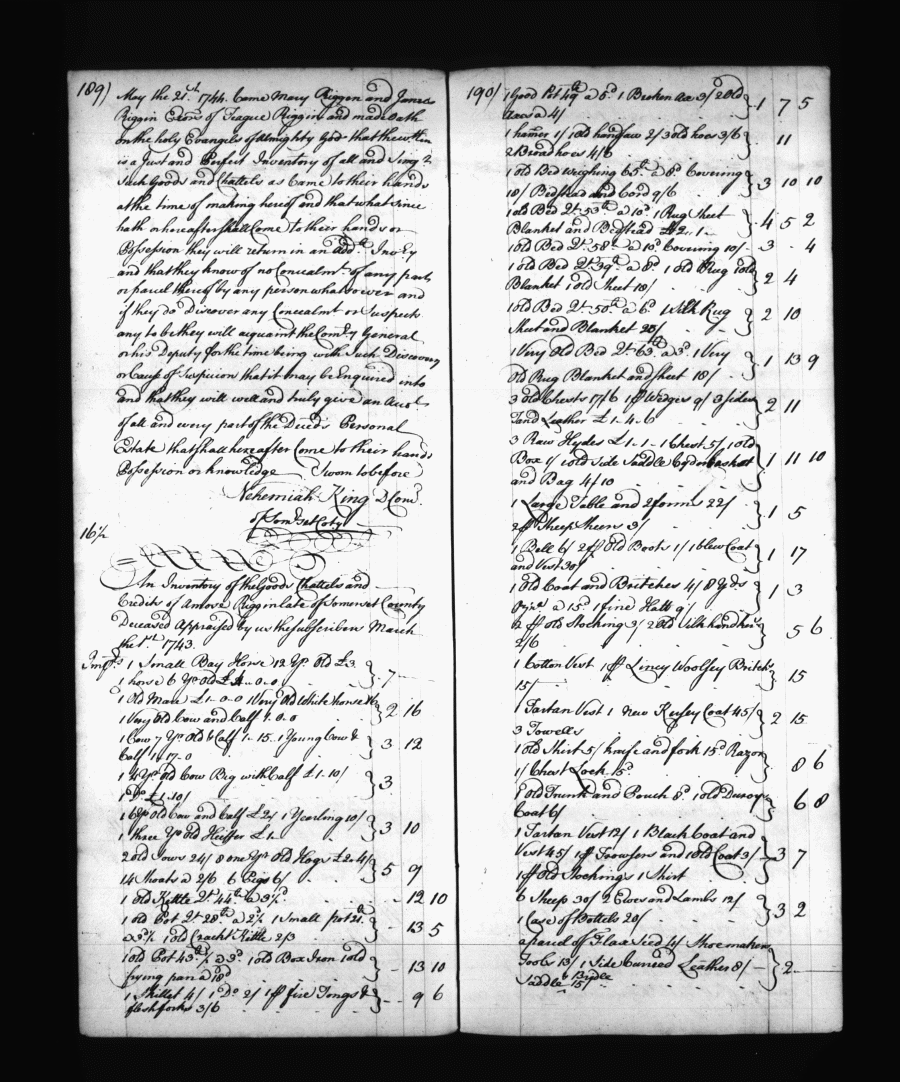 189)
May the 21.st 1744. Came Mary Riggen and James
Riggin Exors of Teague Riggin and made Oath
on the holy Evangels of Almighty God that the within
is a Just and Perfect Inventory of all and Sing
Such Goods and Chattels as Came to their hands
at the time of making hereof and that what since
hath or hereafter shall Come to their hands or
Possession they will return in an add. Inv.y
and that they know of no Concealmt. of any part
or parcel thereof by any person whatsoever and
if they do Discover any Concealmt or Suspect
any to be they will acquaint the Com.y General
or his Deputy for the time being with such Discovery
or Cause of Suspicion that it may be Enquired into
and that they will well and truly give an Acct.
of all and every part of the Deced's Personal
Estate that shall hereafter Come to their hands
Possession or knowledge Sworn to before
Nehemiah King D Com.
of Som.set Coty
16½
An Inventory of the Goods Chattels and
Credits of Riggin late of Somerset County
Deceased Appraised by us the subscribers March
the 1st. 1743.
1 Small Bay Horse 12 Yrs Old £3
1 horse 6 Yrs Old £4-0-0 } 7
1 Old Mare £1-0-0 1 Very Old White horse
1 Very Old Cow and Calf 1-0-0 } 2 16
1 Cow 7 Yrs Old & Calf 1-15- 1 Young Cow &
Calf 1-17-0 } 3 12
1 4 Yrs old Cow Big with Calf £1-10/
1 Do £1-10/ } 3
1 6 Yrs old Cow and Calf £2/ 1 Yearling 10/
1 three Yrs Old Heiffer £1- } 3 10
2 old Sows 24/ 8 one Yrs Old Hogs £2-4/
14 Shoats a 2/6 6 Pigs 6/ } 5 9
1 Old Kittle Qt. 44lb a 3½d 12 10
1 old Pot Qt 28lb a 2½ 1 Small pot 21
a 3½ 1 old Crackt Kittle 2/3 } 13 5
1 old Pot 43lb ½ a 3d. 1 old Box Iron 1 old
frying pan a 18d } 13 10
1 Skillet 4/ 1 Do 2/ 1 pr fire Tongs &
fleshforks 3/6 } 9 6
190/
1 Good Pot 49lb a 6d. 1 Broken Axe 3/ 2 Old
Axes a 4/ } 1 7 5
1 hamer 1/ 1 old handsaw 2/ 3 old hoes 3/6
2 Broad hoes 4/6 } 11
1 old Bed Weighing 65lb a 8d Covering
18/ Bedstead and Cord 9/6 } 3 10 10
1 old Bed Qt. 53lb a 10d. 1 Rug Sheet
Blanket and Bedstead £2..1.. } 4 5 2
1 old Bed Qt. 58lb a 10d Covering 10/ 3 4
1 old Bed Qt 39lb a 8d. 1 old Rug 1 old
Blanket 1 old Sheet 18/ } 2 4
1 old Bed Qt. 50lb a 6d 1 Rug
Sheet and Blanket 25/ } 2 10
1 Very Old Bed Qt. 63lb a 3d. 1 Very
Old Rug Blanket and Sheet 18/ } 1 13 9
3 old Chests 17/6 1 pr Wedges 9/ 3 sides
Tand Leather £1-4-6 } 2 11
3 Raw Hydes £1-1-1 Chest 5/ 1 old
Box 1/ 1 old Side Saddle basket
and Bag 4/10 } 1 11 10
1 Large Table and 2 forms 22/
2 pr Sheep Sheers 3/ } 1 5
1 Bell 6/ 2 pr Old Boots 1/ 1 blew Coat
and Vest 30/ } 1 17
1 Old Coat and Britches 4/ 8 Yds
a 15d 1 fine Hatt 9/ } 1 3
2 pr old Stocking 3/ 2 Old Silk handker
2/6 } 5 6
1 Cotton Vest 1 pr Lincy Woolsey Britches
15/ } 15
1 Tartan Vest 1 new Kersey Coat 45/
3 Towells } 2 15
1 old Shirt 5/ knife and fork 15d Razor
1/ Chest Lock 15d. } 8 6
1 old Trunk and Pouch 8d. 1 old Duroy
Coat 6/ } 6 8
1 Tartan Vest 12/ 1 Black Coat and
Vest 45/ 1 pr Trowsers and 1 Old Coat 3/ } 3 7
1 pr Old Stockings 1 Shirt
6 Sheep 30/ 2 Ewes and Lambs 12/
1 Case of Bottels 20/ } 3 2
a parcel of Flax Seed 4/ Shoemakers
Tools 13/ 1 Side Curried Leather 8/
Saddle & Bridle 15/ } 2